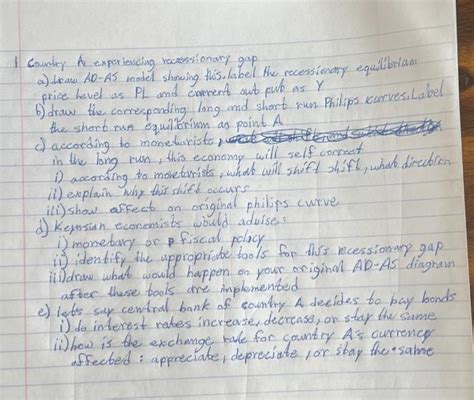 1 Country A experiencing recessionary gap
a) draw AD-AS model showing this. label the recessionary equilibrium
price level as PL and current out pub as Y
b) draw the corresponding long and short run Philips curves. Label
the short run equilibrium as point A
c) according to monetarists,
in the long run, this economy will self correct
i) according to monetarists, what will shift shift, what direction
ii) explain why this shift occurs
iii) show affect on original philips curve
d) Keynsian economists would advise:
i) monetary or fiscal policy
ii) identify the appropriate tools for this recessionary gap
iii) draw what would happen on your original AD-AS diagram
after these tools are implemented
e) let's say central bank of country A decides to buy bonds
i) do interest rates increase, decrease, or stay the same
ii) how is the exchange rate for country A's currency
affected: appreciate, depreciate, or stay the same